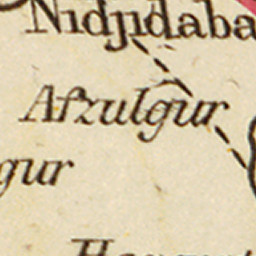 Nidjidaba
Afzulgur
gur